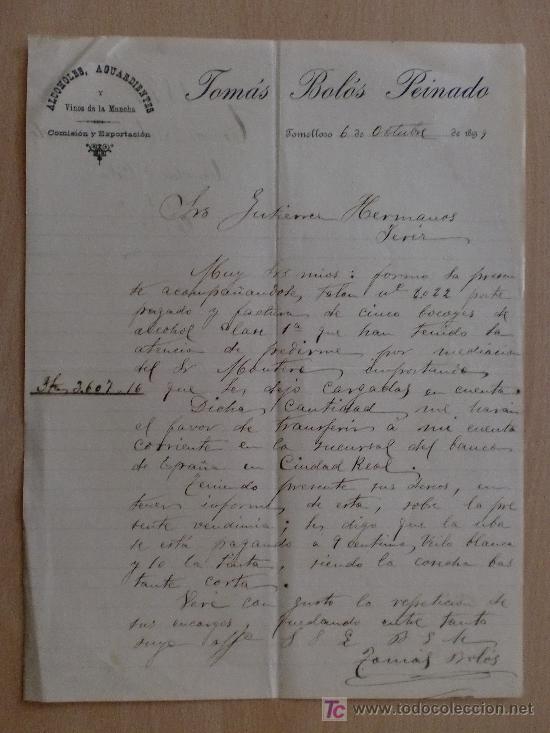 ALCOHOLES, AGUARDIENTES
Y
Vinos de la Mancha
Comisión y Exportación
Tomás Bolós Peinado
Tomelloso 6 de Octubre de 1899
Sres Gutierrez Hermanos
Jerez
Muy Sres mios: formo la presen
te acompañandoles talon nº 2022 porte
pagado y factura de cinco bocoyes de
alcohol clase 1ª que han tenido la
atencion de pedirme por mediacion
del Sr Montero, importando
Ptas 2.607-16 que les dejo cargadas en cuenta.
Dicha cantidad, me harán
el favor de transferir a mi cuenta
corriente en la sucursal del banco
de España en Ciudad Real.
Teniendo presente sus deseos, en
tener informes de esta, sobre la pre
sente vendimia; les digo que la uba
se está pagando a 9 centimos kilo blanca
y 10 la tinta, siendo la cosecha bas
tante corta.
Veré con gusto la repeticion de
sus encargos, quedando entre tanto
suyo affº S S Q B S M
Tomás Bolós
todocoleccion
www.todocoleccion.net